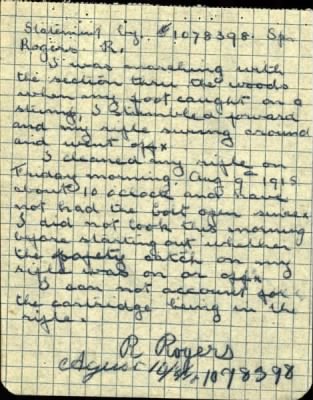 Statement by #1078398. Spr.
Rogers R.
I was marching with
the section thru the woods
when my foot caught on a
stump, I stumbled forward
and my rifle swung around
and went off x
I cleaned my rifle on
Friday morning, Aug 9th 1918
about 10 oclock and have
not had the bolt open since x
I did not look this morning
before starting out whether
the safety catch on my
rifle was on or off x
I can not account for
the cartridge being in the
rifle.
R Rogers
1078398